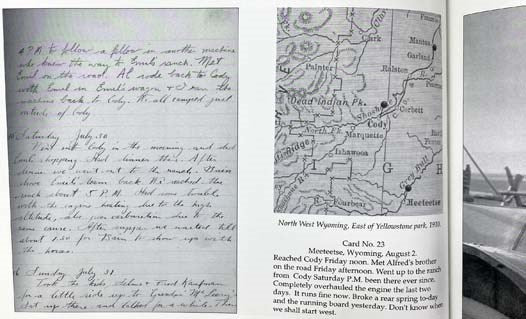 4 P.M to follow a fellow in another machine
who knew the way to Emil's ranch. Met
Emil on the road. Al rode back to Cody
with Emil in Emil's wagon & I ran the
machine back to Cody. We all camped just
outside of Cody.
Saturday July 30
Went into Cody in the morning and did
some shopping. Had dinner there. After
dinner we went out to the ranch.
drove Emil's team back. We reached the
ranch about 5 P.M. Had some trouble
with the engine heating due to the high
altitude, also poor carburation due to the
same cause. After supper we waited till
about 1:30 for to show up with
the horses.
Sunday July 31
Took the kids, and Fred Kaufman
for a little ride up to
Sat up there and talked for a while. Then
Clark
Painter
Mantua
Garland
Ralston
Dead Indian Pk.
Shosh
Corbett
Cody
North Pk.
Marquette
Ishawooa
Ridge
Grey Bull
Meeteetse
G H
North West Wyoming, East of Yellowstone park, 1910.
Card No. 23
Meeteetse, Wyoming, August 2.
Reached Cody Friday noon. Met Alfred's brother
on the road Friday afternoon. Went up to the ranch
from Cody Saturday P.M. been there ever since.
Completely overhauled the engine the last two
days. It runs fine now. Broke a rear spring to-day
and the running board yesterday. Don't know when
we shall start west.